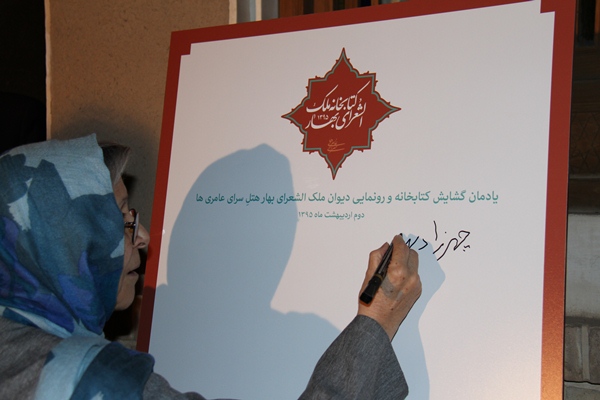 کتابخانه ملک
الشعرای بهار
۱۳۹۵
یادمان گشایش کتابخانه و رونمایی دیوان ملک الشعرای بهار هتل سرای عامری ها
دوم اردیبهشت ماه ۱۳۹۵
چهرزاد